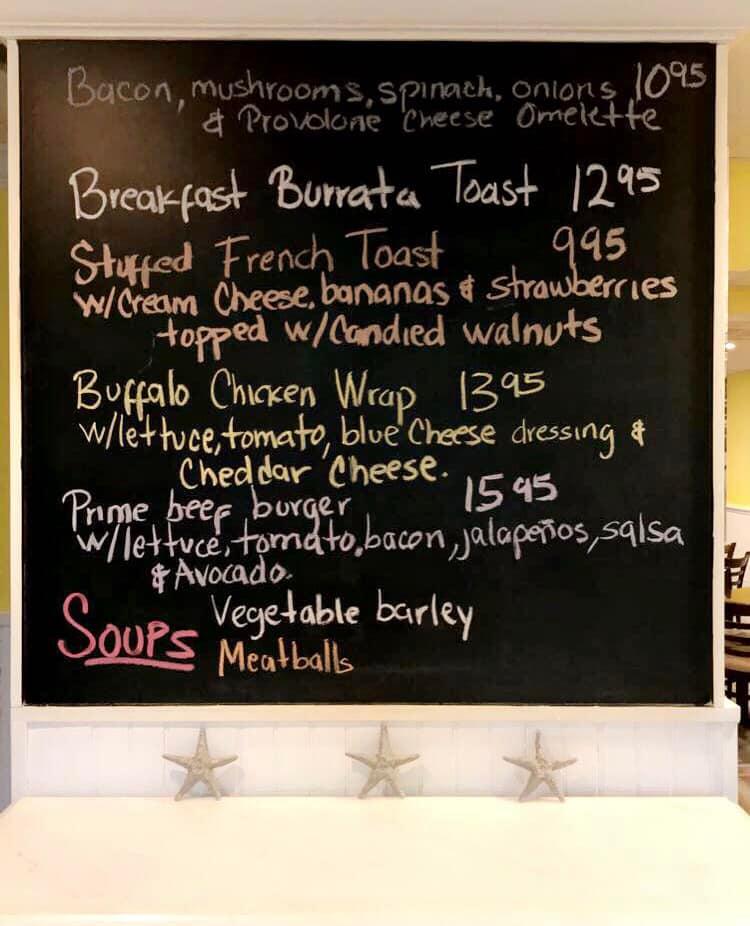 Bacon, mushrooms, spinach, onions 10 95
& Provolone Cheese Omelette
Breakfast Burrata Toast 12 95
Stuffed French Toast 9 95
w/Cream Cheese, bananas & strawberries
topped w/Candied walnuts
Buffalo Chicken Wrap 13 95
w/lettuce, tomato, blue Cheese dressing &
Cheddar Cheese.
Prime beef burger 15 95
w/lettuce, tomato, bacon, jalapeños, salsa
& Avocado.
Soups Vegetable barley
Meatballs